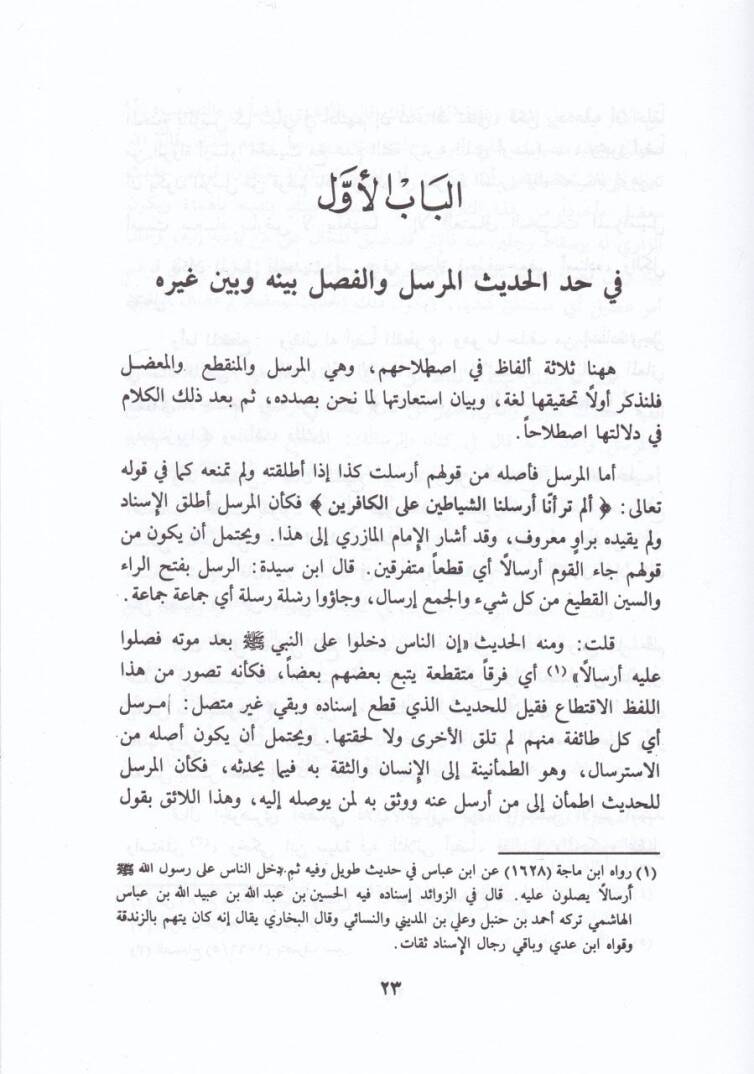 البَابُ الأوَّل
في حد الحديث المرسل والفصل بينه وبين غيره
ههنا ثلاثة ألفاظ في اصطلاحهم، وهي المرسل والمنقطع والمعضل
فلنذكر أولاً تحقيقها لغة، وبيان استعارتها لما نحن بصدده، ثم بعد ذلك الكلام
في دلالتها اصطلاحاً.
أما المرسل فأصله من قولهم أرسلت كذا إذا أطلقته ولم تمنعه كما في قوله
تعالى: ﴿ ألم تر أنّا أرسلنا الشياطين على الكافرين ﴾ فكأن المرسل أطلق الإسناد
ولم يقيده براوٍ معروف، وقد أشار الإمام المازري إلى هذا. ويحتمل أن يكون من
قولهم جاء القوم أرسالاً أي قطعاً متفرقين. قال ابن سيدة: الرسل بفتح الراء
والسين القطيع من كل شيء والجمع إرسال، وجاؤوا رسلة رسلة أي جماعة جماعة.
قلت: ومنه الحديث «إن الناس دخلوا على النبي ﷺ بعد موته فصلوا
عليه أرسالاً» (١) أي فرقاً متقطعة يتبع بعضهم بعضاً، فكأنه تصور من هذا
اللفظ الاقتطاع فقيل للحديث الذي قطع إسناده وبقي غير متصل: مرسل
أي كل طائفة منهم لم تلق الأخرى ولا لحقتها. ويحتمل أن يكون أصله من
الاسترسال، وهو الطمأنينة إلى الإنسان والثقة به فيما يحدثه، فكأن المرسل
للحديث اطمأن إلى من أرسل عنه ووثق به لمن يوصله إليه، وهذا اللائق بقول
(١) رواه ابن ماجة (١٦٢٨) عن ابن عباس في حديث طويل وفيه ثم دخل الناس على رسول الله ﷺ
أرسالاً يصلون عليه. قال في الزوائد إسناده فيه الحسين بن عبد الله بن عبيد الله بن عباس
الهاشمي تركه أحمد بن حنبل وعلي بن المديني والنسائي وقال البخاري يقال إنه كان يتهم بالزندقة
وقواه ابن عدي وباقي رجال الإسناد ثقات.
٢٣